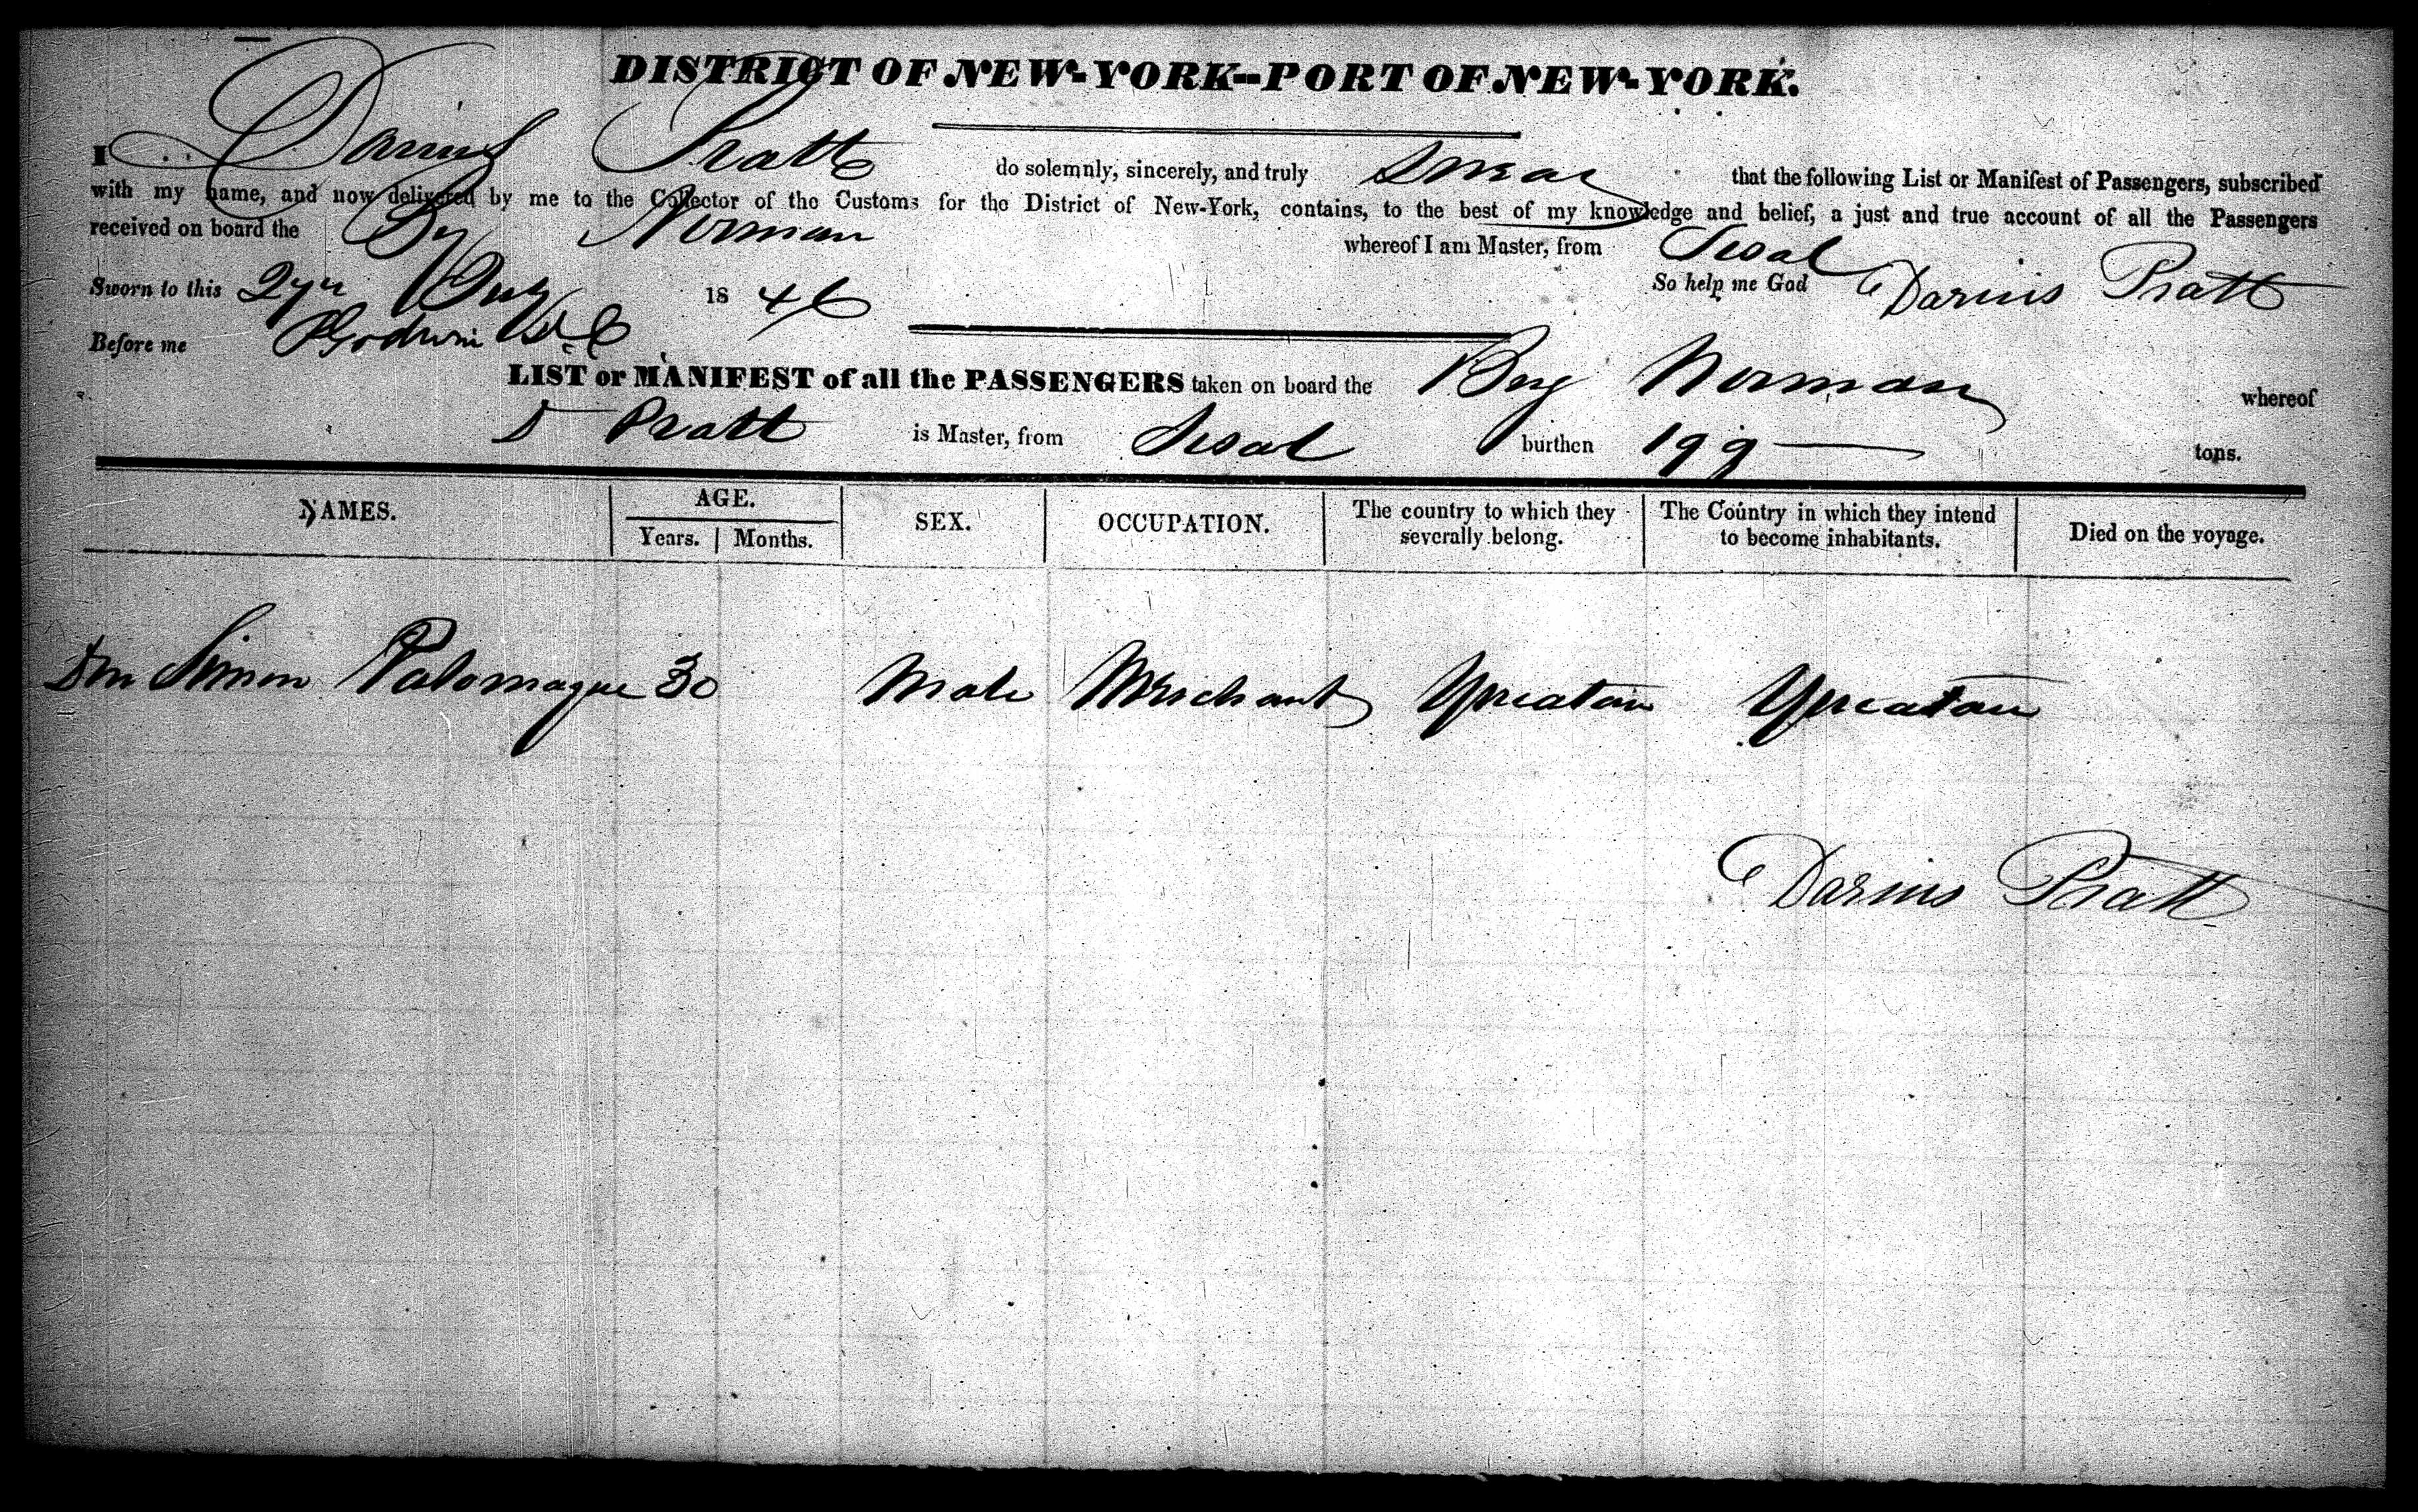 DISTRICT OF NEW-YORK--PORT OF NEW-YORK.
I Darius Pratt do solemnly, sincerely, and truly Swear that the following List or Manifest of Passengers, subscribed
with my name, and now delivered by me to the Collector of the Customs for the District of New-York, contains, to the best of my knowledge and belief, a just and true account of all the Passengers
received on board the Norman whereof I am Master, from Sisal
Sworn to this 27th 1846 So help me God Darius Pratt
Before me Godwin
LIST or MANIFEST of all the PASSENGERS taken on board the Brig Norman whereof
D Pratt is Master, from Sisal burthen 199 tons.
NAMES. AGE. SEX. OCCUPATION. The country to which they severally belong. The Country in which they intend to become inhabitants. Died on the voyage.
Years. Months.
Don Simon Palomaque 30 Male Merchant Yucatan Yucatan
Darius Pratt